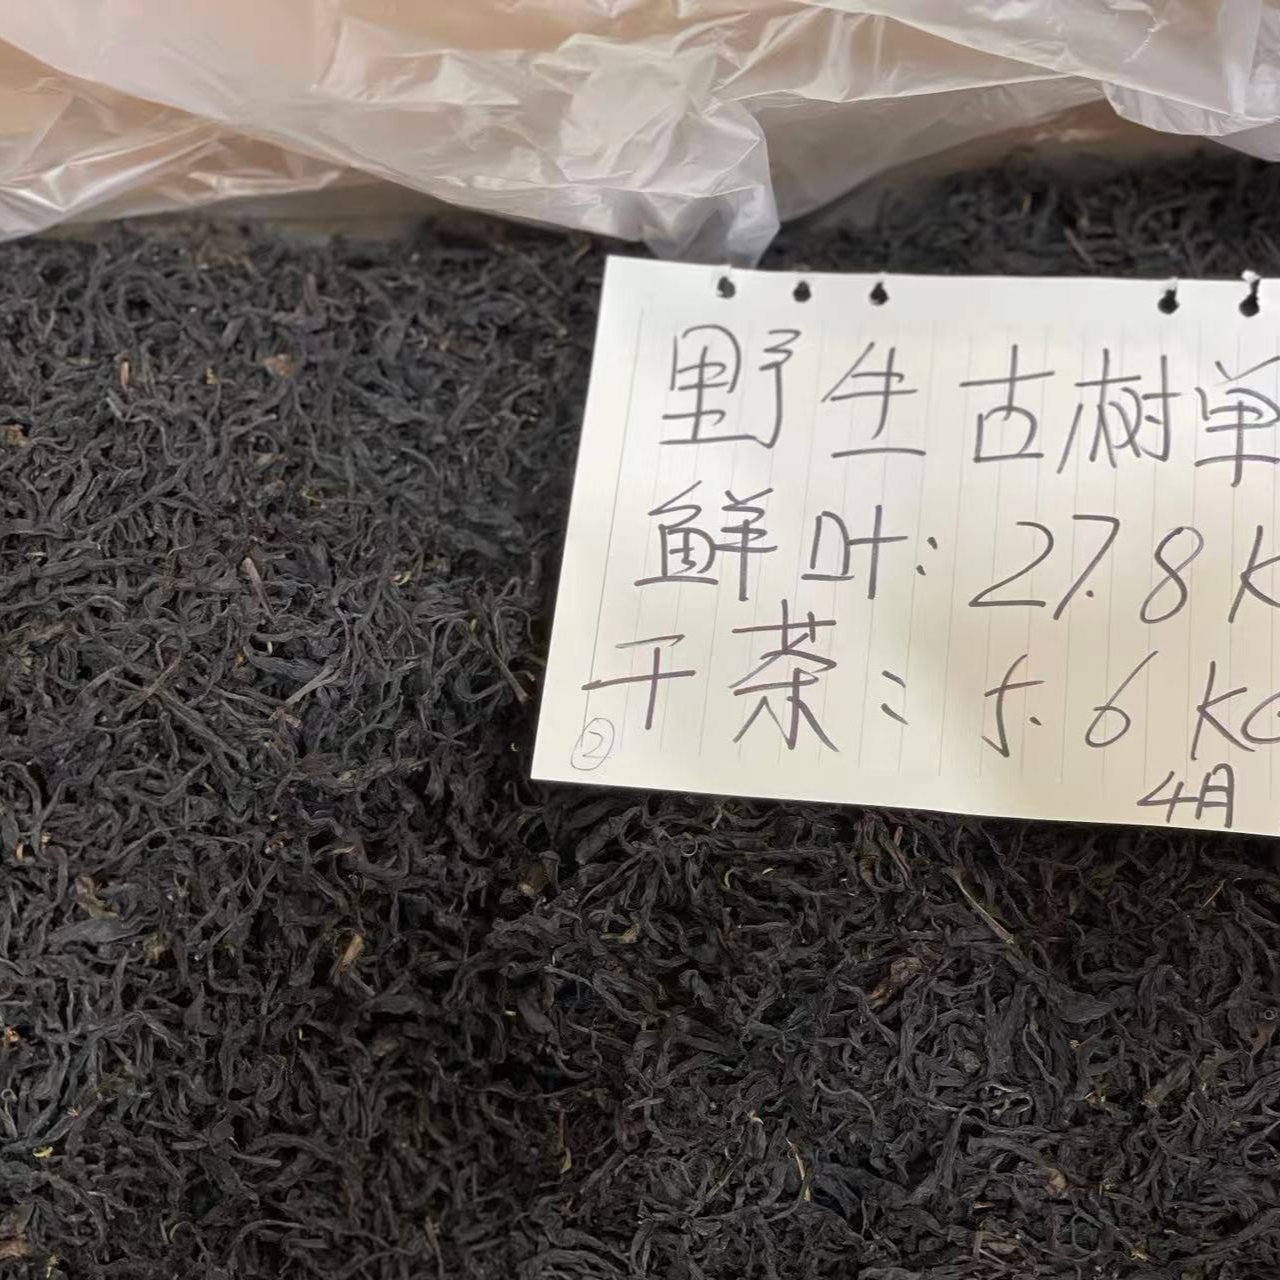 野生古树单
鲜叶: 27.8 K
干茶: 5.6 KG
②
4月